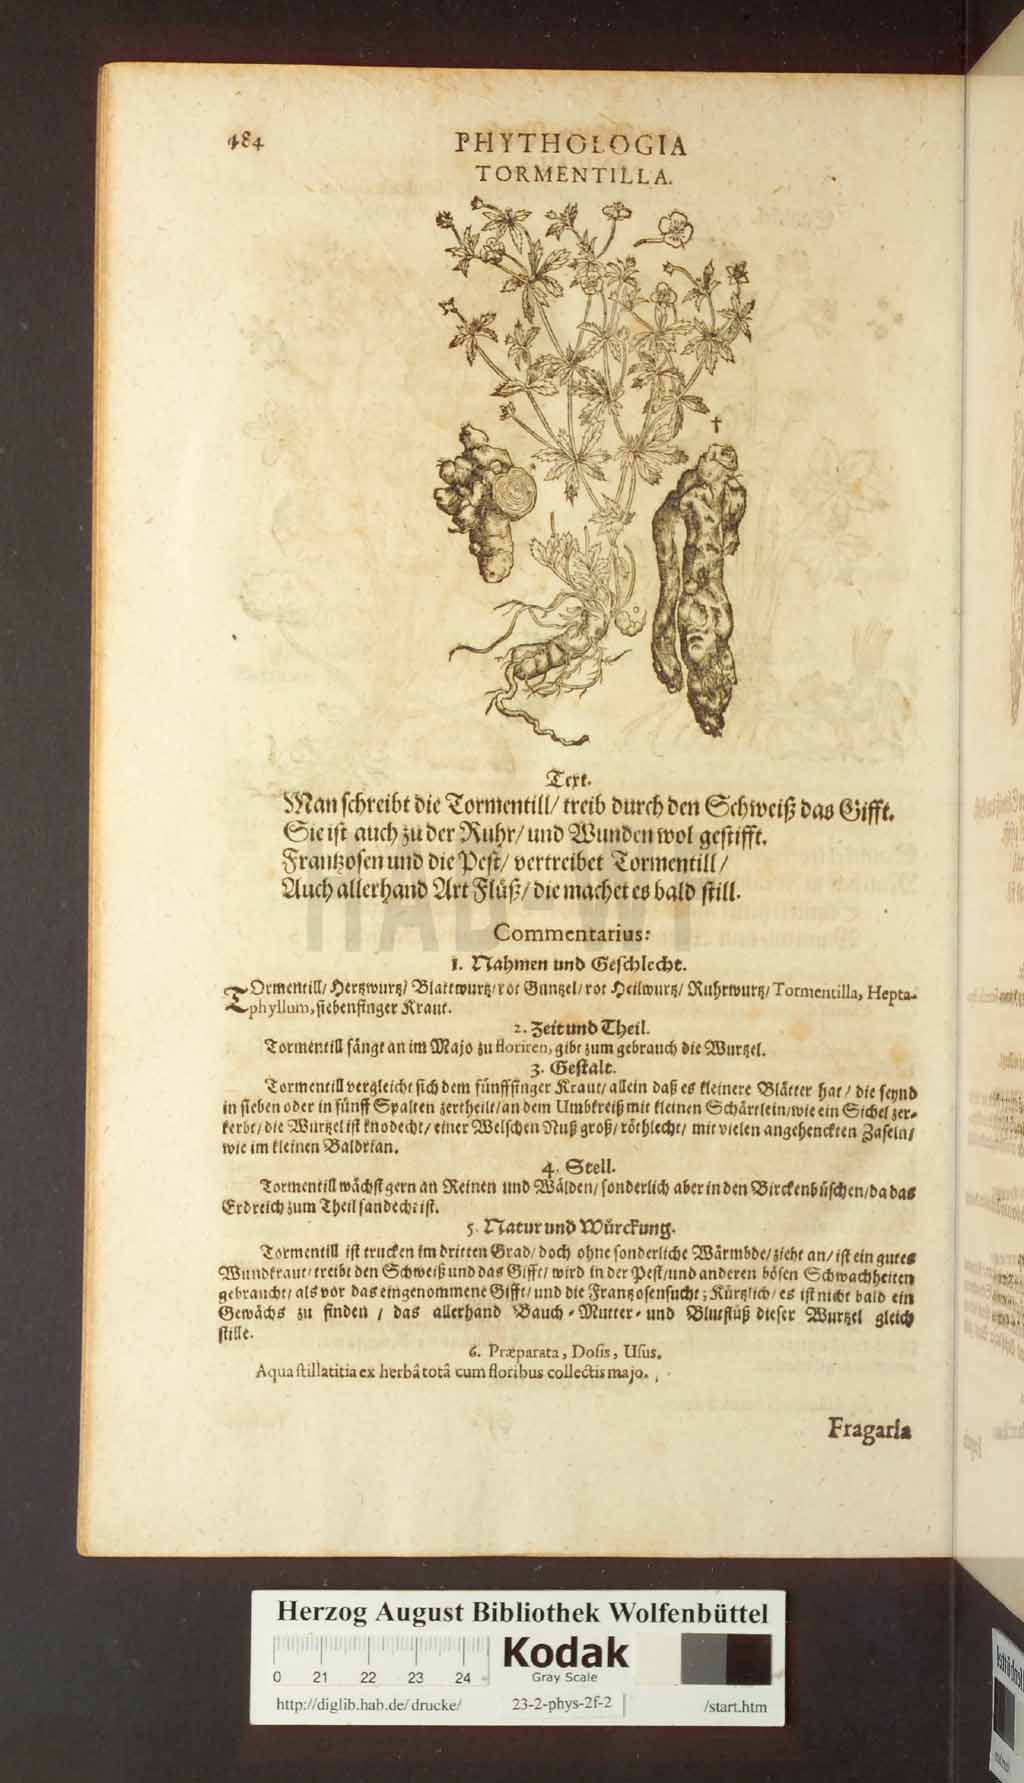 184
PHYTHOLOGIA
TORMENTILLA.
Text.
Man schreibt die Tormentill/ treib durch den Schweiß das Gifft.
Sie ist auch zu der Ruhr/ und Wunden wol gestifft.
Frantzosen und die Pest/ vertreibet Tormentill/
Auch allerhand Art Flüß/ die machet es bald still.
Commentarius:
1. Nahmen und Geschlecht.
TOrmentill/ Hertzwurtz/ Blattwurtz/ rot Guntzel/ rot Heilwurtz/ Ruhrwurtz/ Tormentilla, Hepta-
phyllum, siebenfinger Kraut.
2. Zeit und Theil.
Tormentill fängt an im Majo zu floriren, gibt zum gebrauch die Wurtzel.
3. Gestalt.
Tormentill vergleicht sich dem fünfffinger Kraut/ allein daß es kleinere Blätter hat/ die seynd
in sieben oder in fünff Spalten zertheilt/ an dem Umbkreiß mit kleinen Schärtlein/ wie ein Sichel zer-
kerbt/ die Wurtzel ist knodecht/ einer Welschen Nuß groß/ röthlecht/ mit vielen angehenckten Zaseln/
wie im kleinen Baldrian.
4. Stell.
Tormentill wächst gern an Reinen und Wälden/ sonderlich aber in den Birckenbüschen/ da das
Erdreich zum Theil sandecht ist.
5. Natur und Würckung.
Tormentill ist trucken im dritten Grad/ doch ohne sonderliche Wärmbde/ zieht an/ ist ein gutes
Wundkraut/ treibt den Schweiß und das Gifft/ wird in der Pest/ und anderen bösen Schwachheiten
gebraucht/ als vor das eingenommene Gifft/ und die Frantzosensucht; Kürtzlich/ es ist nicht bald ein
Gewächs zu finden / das allerhand Bauch-Mutter-und Blutflüß dieser Wurtzel gleich
stille.
6. Præparata, Dosis, Usus.
Aqua stillatitia ex herbâ totâ cum floribus collectis majo.
Fragaria
Herzog August Bibliothek Wolfenbüttel
Kodak
Gray Scale
0 21 22 23 24
http://diglib.hab.de/drucke/ 23-2-phys-2f-2 /start.htm